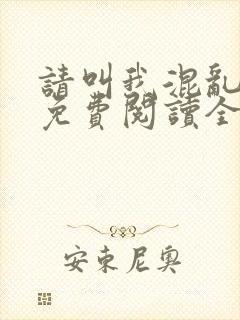 請叫我混亂
免費閱讀全
安東尼奧